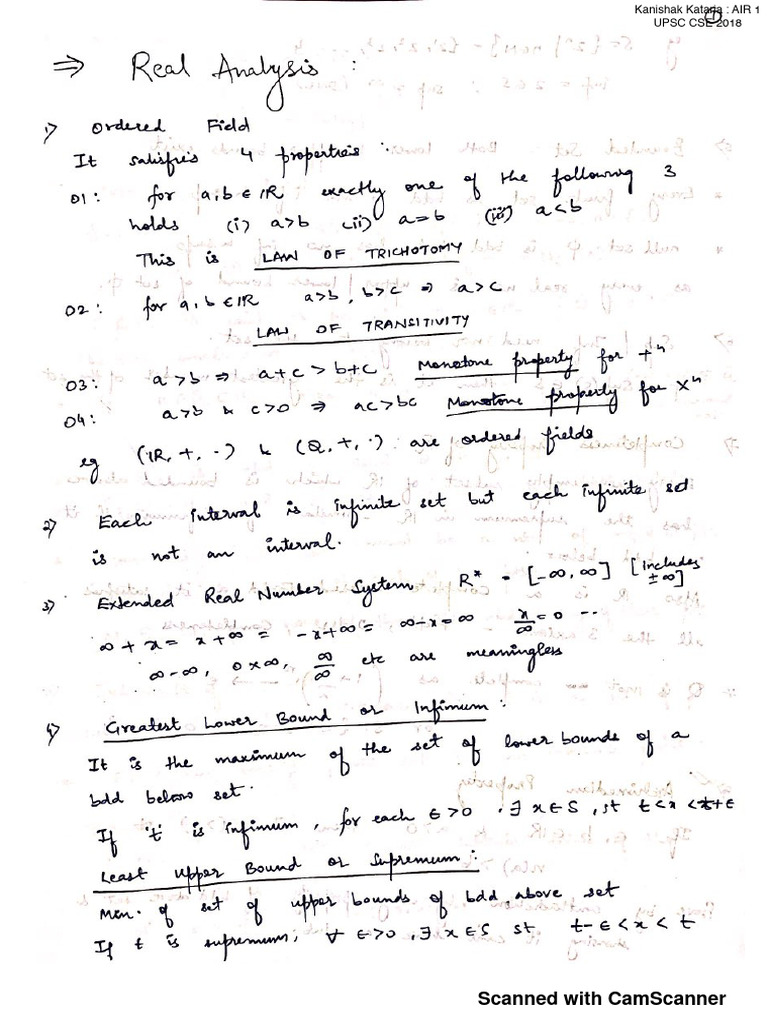 Kanishak Kataria : AIR 1
UPSC CSE 2018
1
⇒ Real Analysis :
1) Ordered Field
It satisfies 4 properties :
O1 : for a, b ∈ IR exactly one of the following 3
holds (i) a>b (ii) a=b (iii) a<b
This is LAW OF TRICHOTOMY
O2 : for a, b ∈ IR a>b, b>c ⇒ a>c
LAW OF TRANSITIVITY
O3 : a>b ⇒ a+c > b+c Monotone property for +ⁿ
O4 : a>b & c>0 ⇒ ac>bc Monotone property for Xⁿ
eg (IR, +, ·) & (Q, +, ·) are ordered fields
2) Each interval is infinite set but each infinite set
is not an interval.
3) Extended Real Number System R* = [-∞, ∞] [includes ±∞]
∞+x = x+∞ = -x+∞ = ∞-x = ∞ x/∞ = 0 --
∞-∞, 0×∞, ∞/∞ etc are meaningless
4) Greatest Lower Bound or Infimum :
It is the maximum of the set of lower bounds of a
bdd below set.
If 't' is infimum, for each ϵ>0, ∃ x∈S, st t<x<t+ϵ
Least Upper Bound or Supremum :
Min. of set of upper bounds of bdd above set
If t is supremum; ∀ ϵ>0, ∃ x∈S st t-ϵ<x<t
Scanned with CamScanner